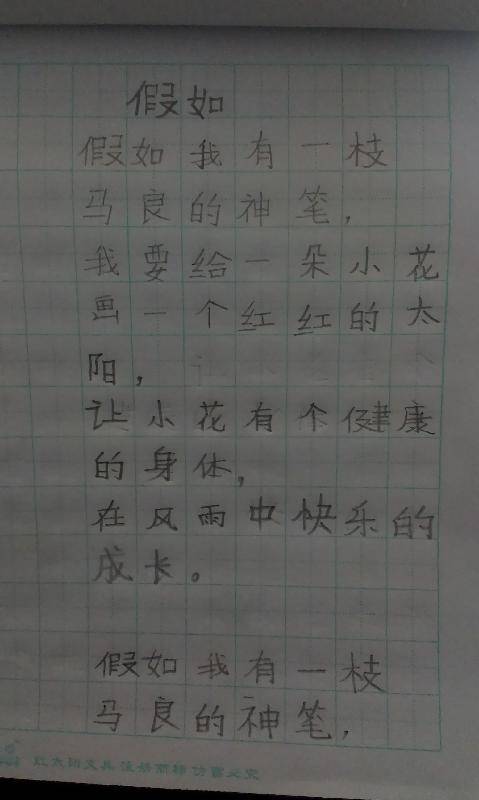 假如
假如我有一枝
马良的神笔，
我要给一朵小花
画一个红红的太
阳，
让小花有个健康
的身体，
在风雨中快乐的
成长。
假如我有一枝
马良的神笔，